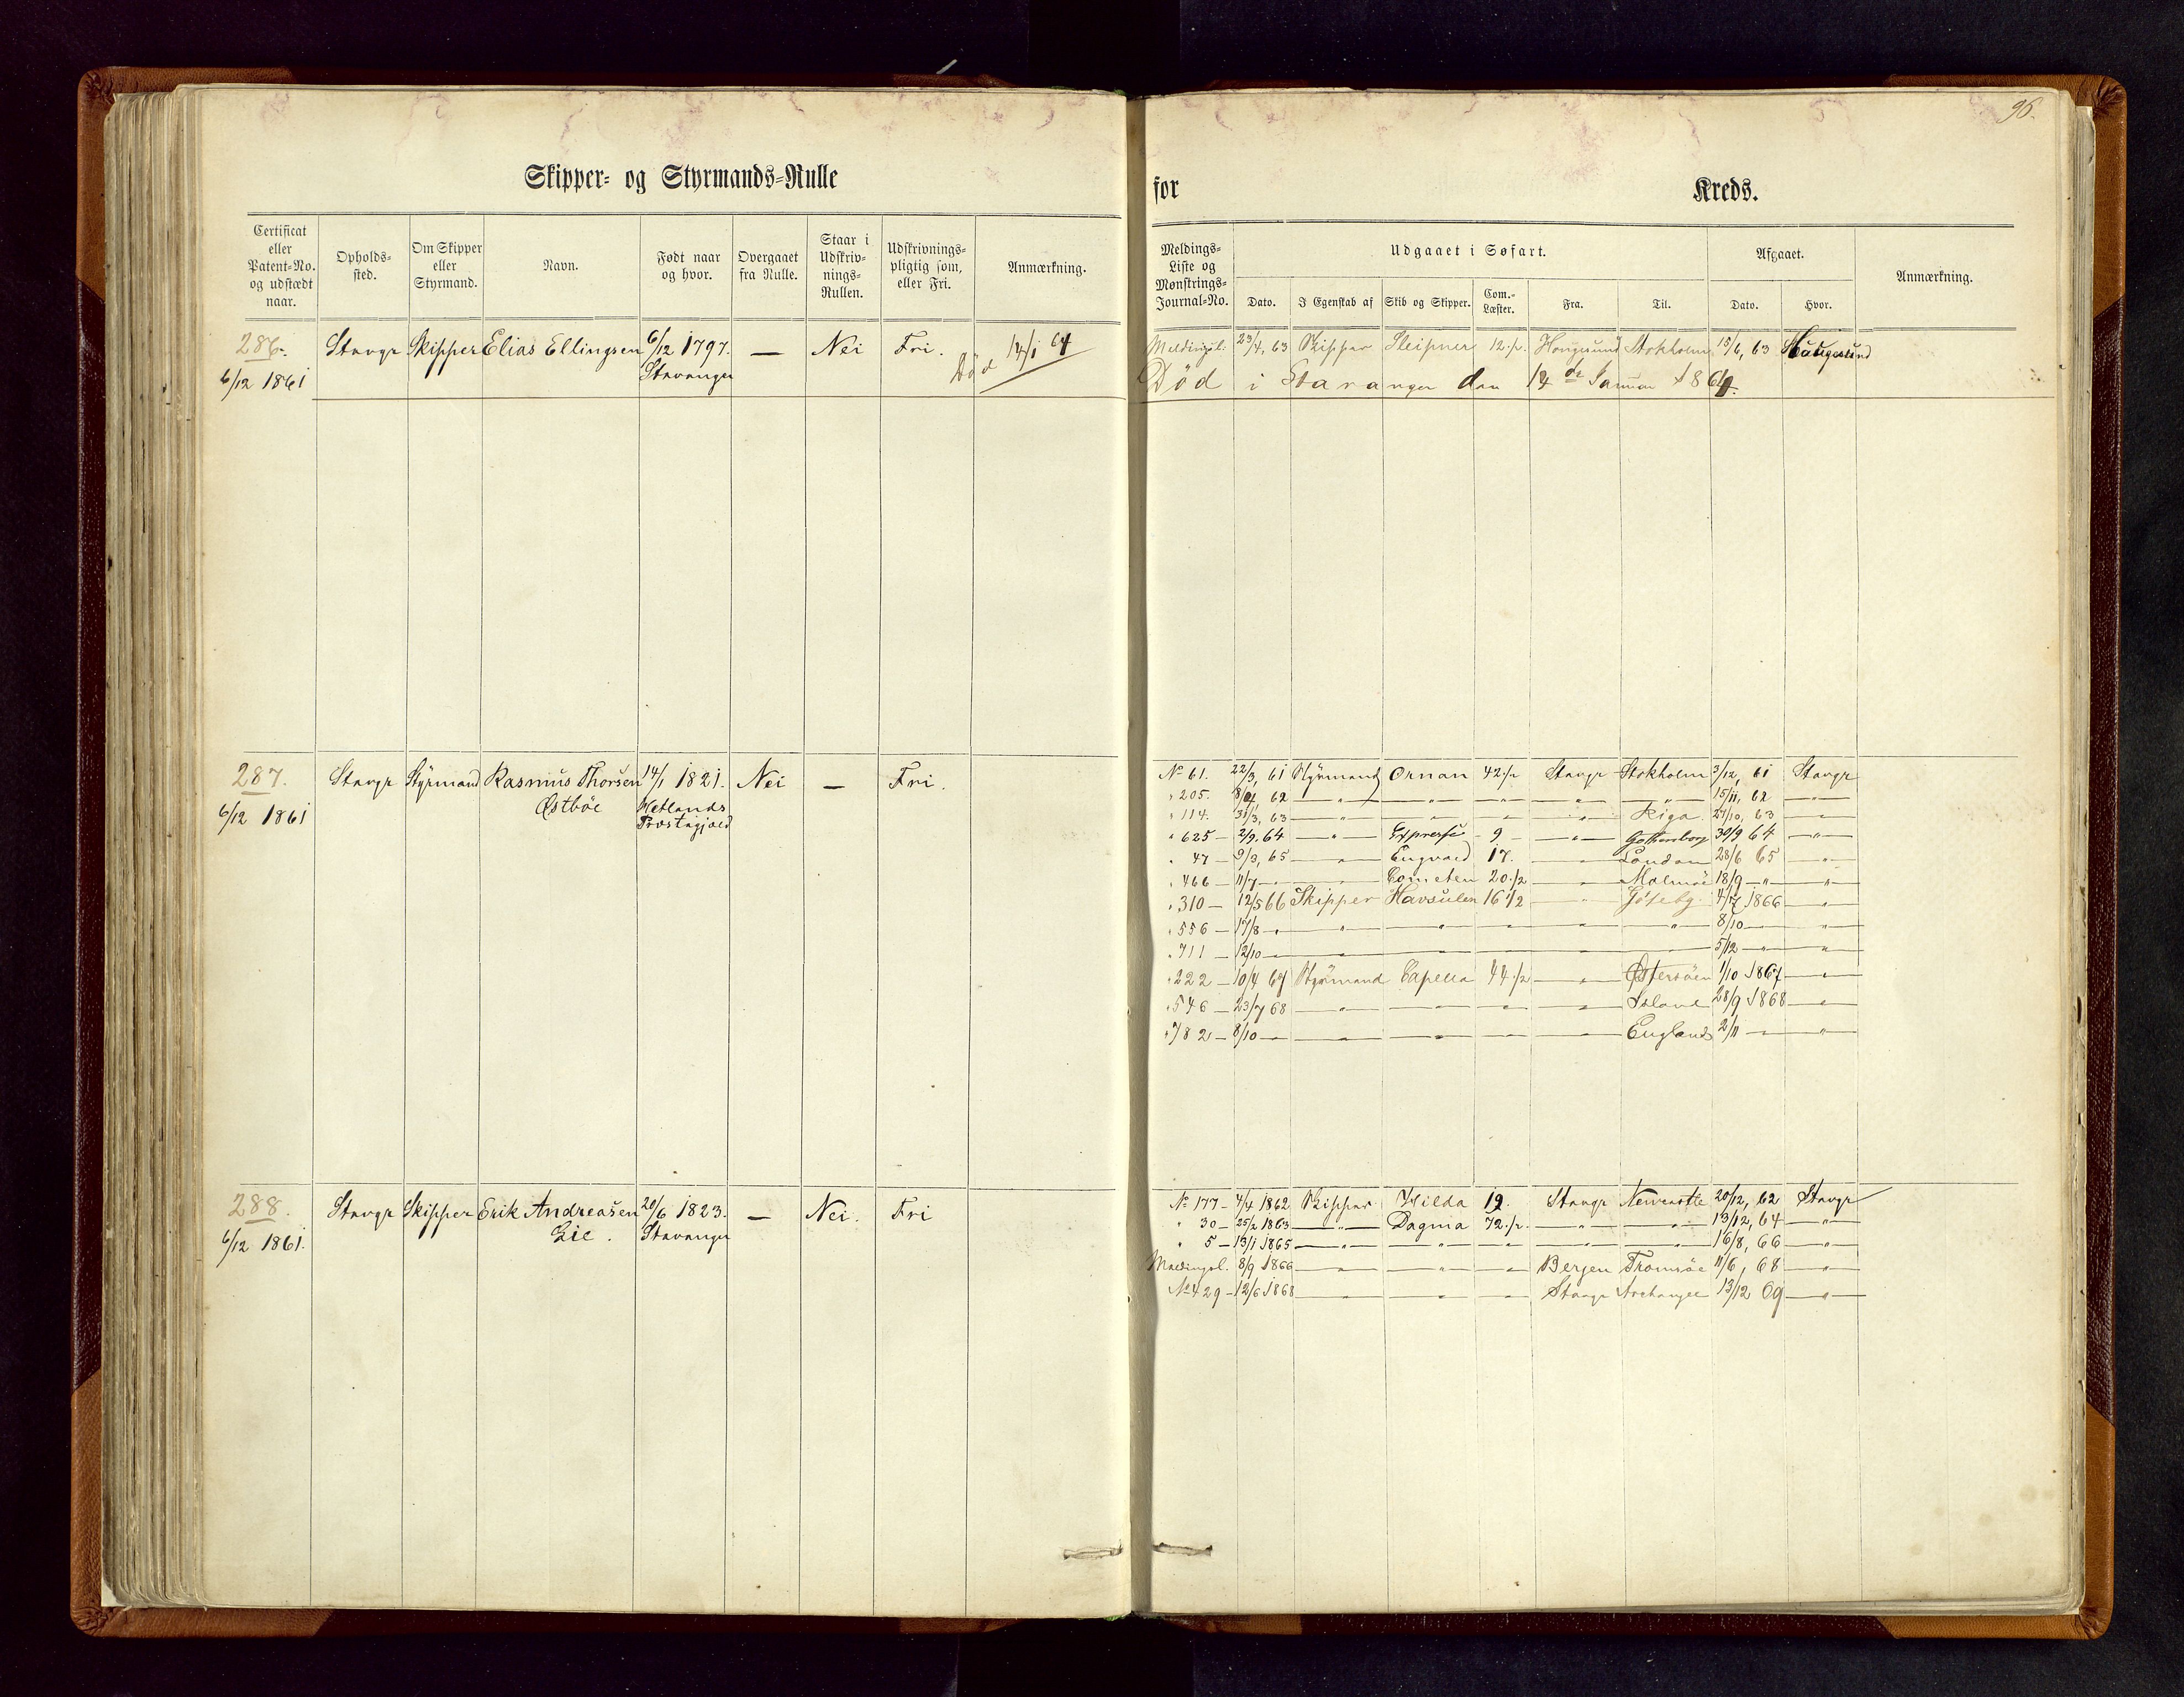 96.
Skipper- og Styrmands-Rulle
for Kreds.
Certificat eller Patent-No. og udstædt naar.
Opholds-sted.
Om Skipper eller Styrmand.
Navn.
Født naar og hvor.
Overgaaet fra Rulle.
Staar i Udskriv-nings-Rullen.
Udskrivnings-pligtig som, eller Fri.
Anmærkning.
Meldings-Liste og Mønstrings-Journal-No.
Udgaaet i Søfart.
Dato.
I Egenskab af
Skib og Skipper.
Com.-Læster.
Fra.
Til.
Afgaaet.
Dato.
Hvor.
Anmærkning.
286. Stavgr Skipper Elias Ellingsen 6/12 1797. — Nei Fri. Død 14/1 64
6/12 1861 Stavanger
Meldingsl. 23/4, 63 Skipper Sleipner 12 1/2. Haugesund Stokholm 15/6, 63 Haugesund
Død i Stavanger den 14de Januar 1864.
287. Stavgr Styrmand Rasmus Thorsen 14/1 1821. Nei — Fri.
6/12 1861 Østböe Hetlands
Præstegjæld
No 61. 22/3, 61 Styrmand Ornan 42 1/2 Stavgr Stokholm 3/12, 61 Stavgr
" 205. 8/4 62 — " — — " — — " — — " — — " — 15/11, 62 — " —
" 114. 31/3, 63 — " — — " — — " — — " — Riga. 27/10, 63 — " —
" 625 — 2/9. 64 — " — Expresse 9 — — " — Gothenborg 30/9 64 — " —
" 47 — 9/3, 65 — " — Engvald 17. — " — London 28/6 65 — " —
" 466 — 11/7 — " — — " — Cometen 20 1/2 — " — Malmöe 18/9 — " — — " —
" 310 — 12/5 66 Skipper Havsulen 16 1/2 — " — Göteby. 4/7 1866 — " —
" 556 — 17/8 — " — — " — — " — — " — — " — — " — 8/10 — — " —
" 711 — 12/10 — " — — " — — " — — " — — " — 5/12 — " — — " —
" 222 — 10/4 67 Styrmand Capella 44 1/2 — " — Østersöen 1/10 1867 — " —
" 546 — 23/7 68 — " — — " — — " — — " — Island 28/9 1868 — " —
" 782 — 8/10 — — " — — " — — " — — " — England 2/11 — — " —
288. Stavgr Skipper Erik Andreasen 20/6 1823. — Nei. Fri
6/12 1861. Gie. Stavanger
No 177 — 4/4 1862 Skipper Hilda 12. Stavgr Newcastle 20/12, 62 Stavgr
" 30 — 25/2 1863 — " — Dagma 72 1/2. — " — — " — 13/12, 64 — " —
" 5 — 13/1 1865 — " — — " — — " — — " — — " — 16/8, 66 — " —
Meldingsl. 8/9 1866 — " — — " — — " — Bergen Tromsöe 11/6, 68 — " —
No 429 — 12/6 1868 — " — — " — — " — Stavgr Archangel 13/12 69 — " —